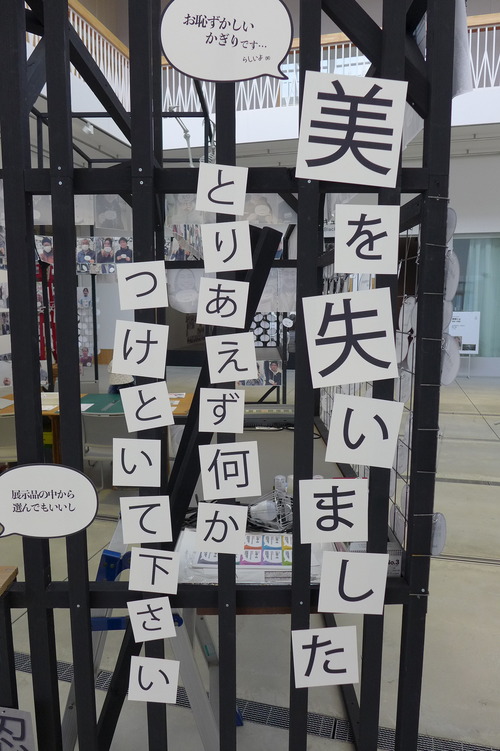 お恥ずかしい
かぎりです…
美を失いました
とりあえず何か
つけといて下さい
展示品の中から
選んでもいいし